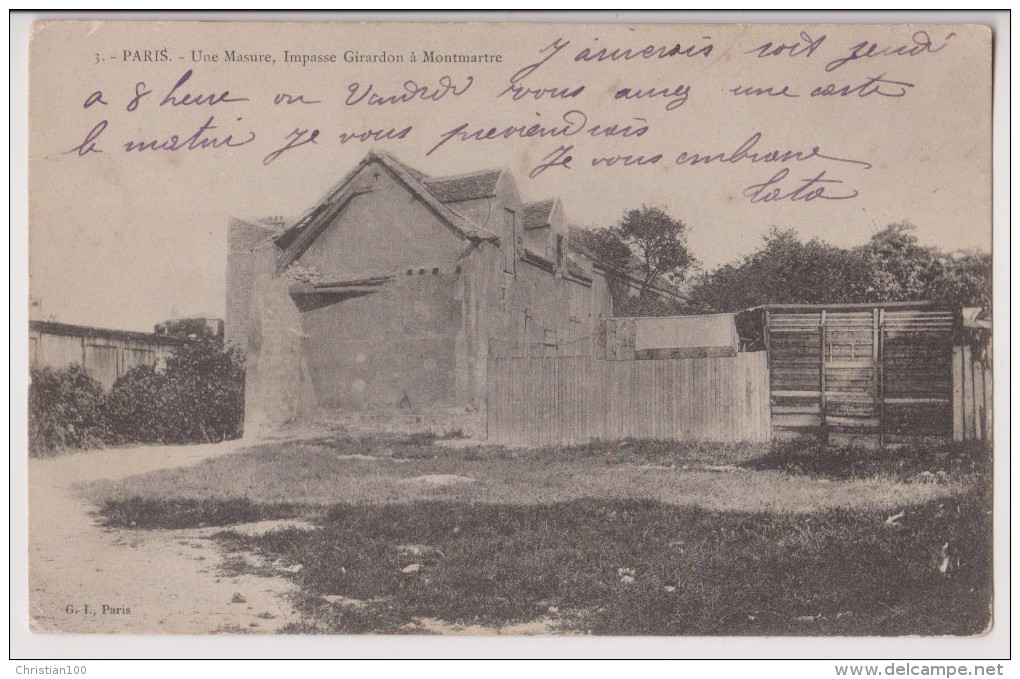 3. - PARIS. - Une Masure, Impasse Girardon à Montmartre
J'aimerais soit jeudi
a 8 heure ou Vandredi vous aurez une carte
le matin Je vous previendrais
Je vous embrasse
Lata
G. I., Paris
Christian100
www.delcampe.net